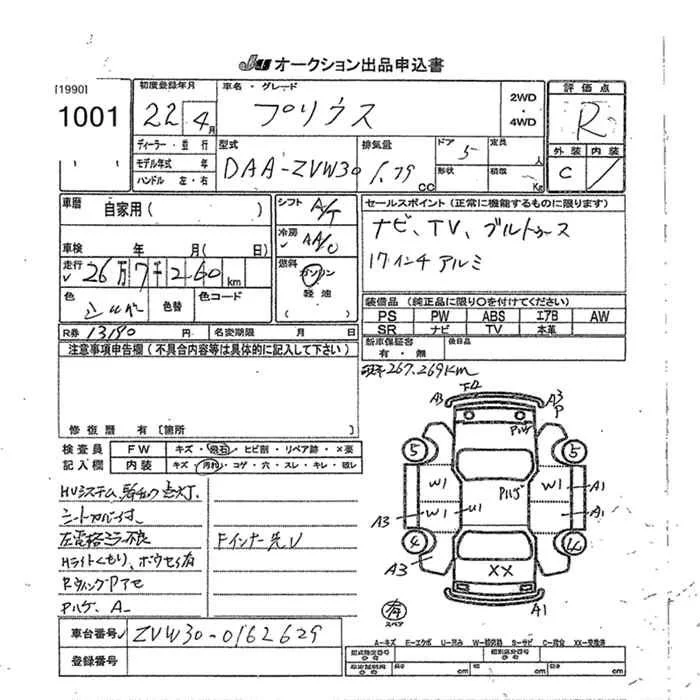 JU オークション出品申込書
[1990]
1001
初度登録年月
22 4 月
車名・グレード
プリウス
2WD
・
4WD
評価点
R
ディーラー・並 行
モデル年式 年
ハンドル 左・右
型式
DAA-ZVW30
排気量
1.79
CC
ドア
5
定員
人
形状
積載
Kg
外装 内装
C
車暦
自家用( )
シフト
A/T
セールスポイント(正常に機能するものに限ります)
ナビ、TV、ブルトゥース
17インチアルミ
車検 年 月( 日)
冷房
AA/C
走行
26万7千260km
燃料
ガソリン
軽油
( )
色
色替
色コード
装備品(純正品に限り○を付けてください)
PS PW ABS エアB AW
SR ナビ TV 本革
R券 13190 円
名変期限 月 日
新車保証書
有・無
後日品
注意事項申告欄(不具合内容等は具体的に記入して下さい)
267,269km
修復暦 有(箇所 )
検査員
記入欄
FW キズ・飛石・ヒビ割・リペア跡・×要
内装 キズ・汚れ・コゲ・穴・スレ・キレ・破レ
HVシステム、点灯、
シートカバー付
左電格ミラー不良
Hライトくもり、
Fインナー先U
Rウィング
Pハゲ、A
車台番号 ZVW30-0162629
登録番号
A3
A3
P
Pハゲ
5
5
W1
W1
Pハゲ
A1
A3
W1
U1
A1
4
A3
XX
A1
有
スペア
A−キズ E−エクボ U−凹み W−補修跡 S−サビ C−腐食 XX−交換済
型式指定番号
類別区分番号
長さ cm 幅 cm 高さ cm